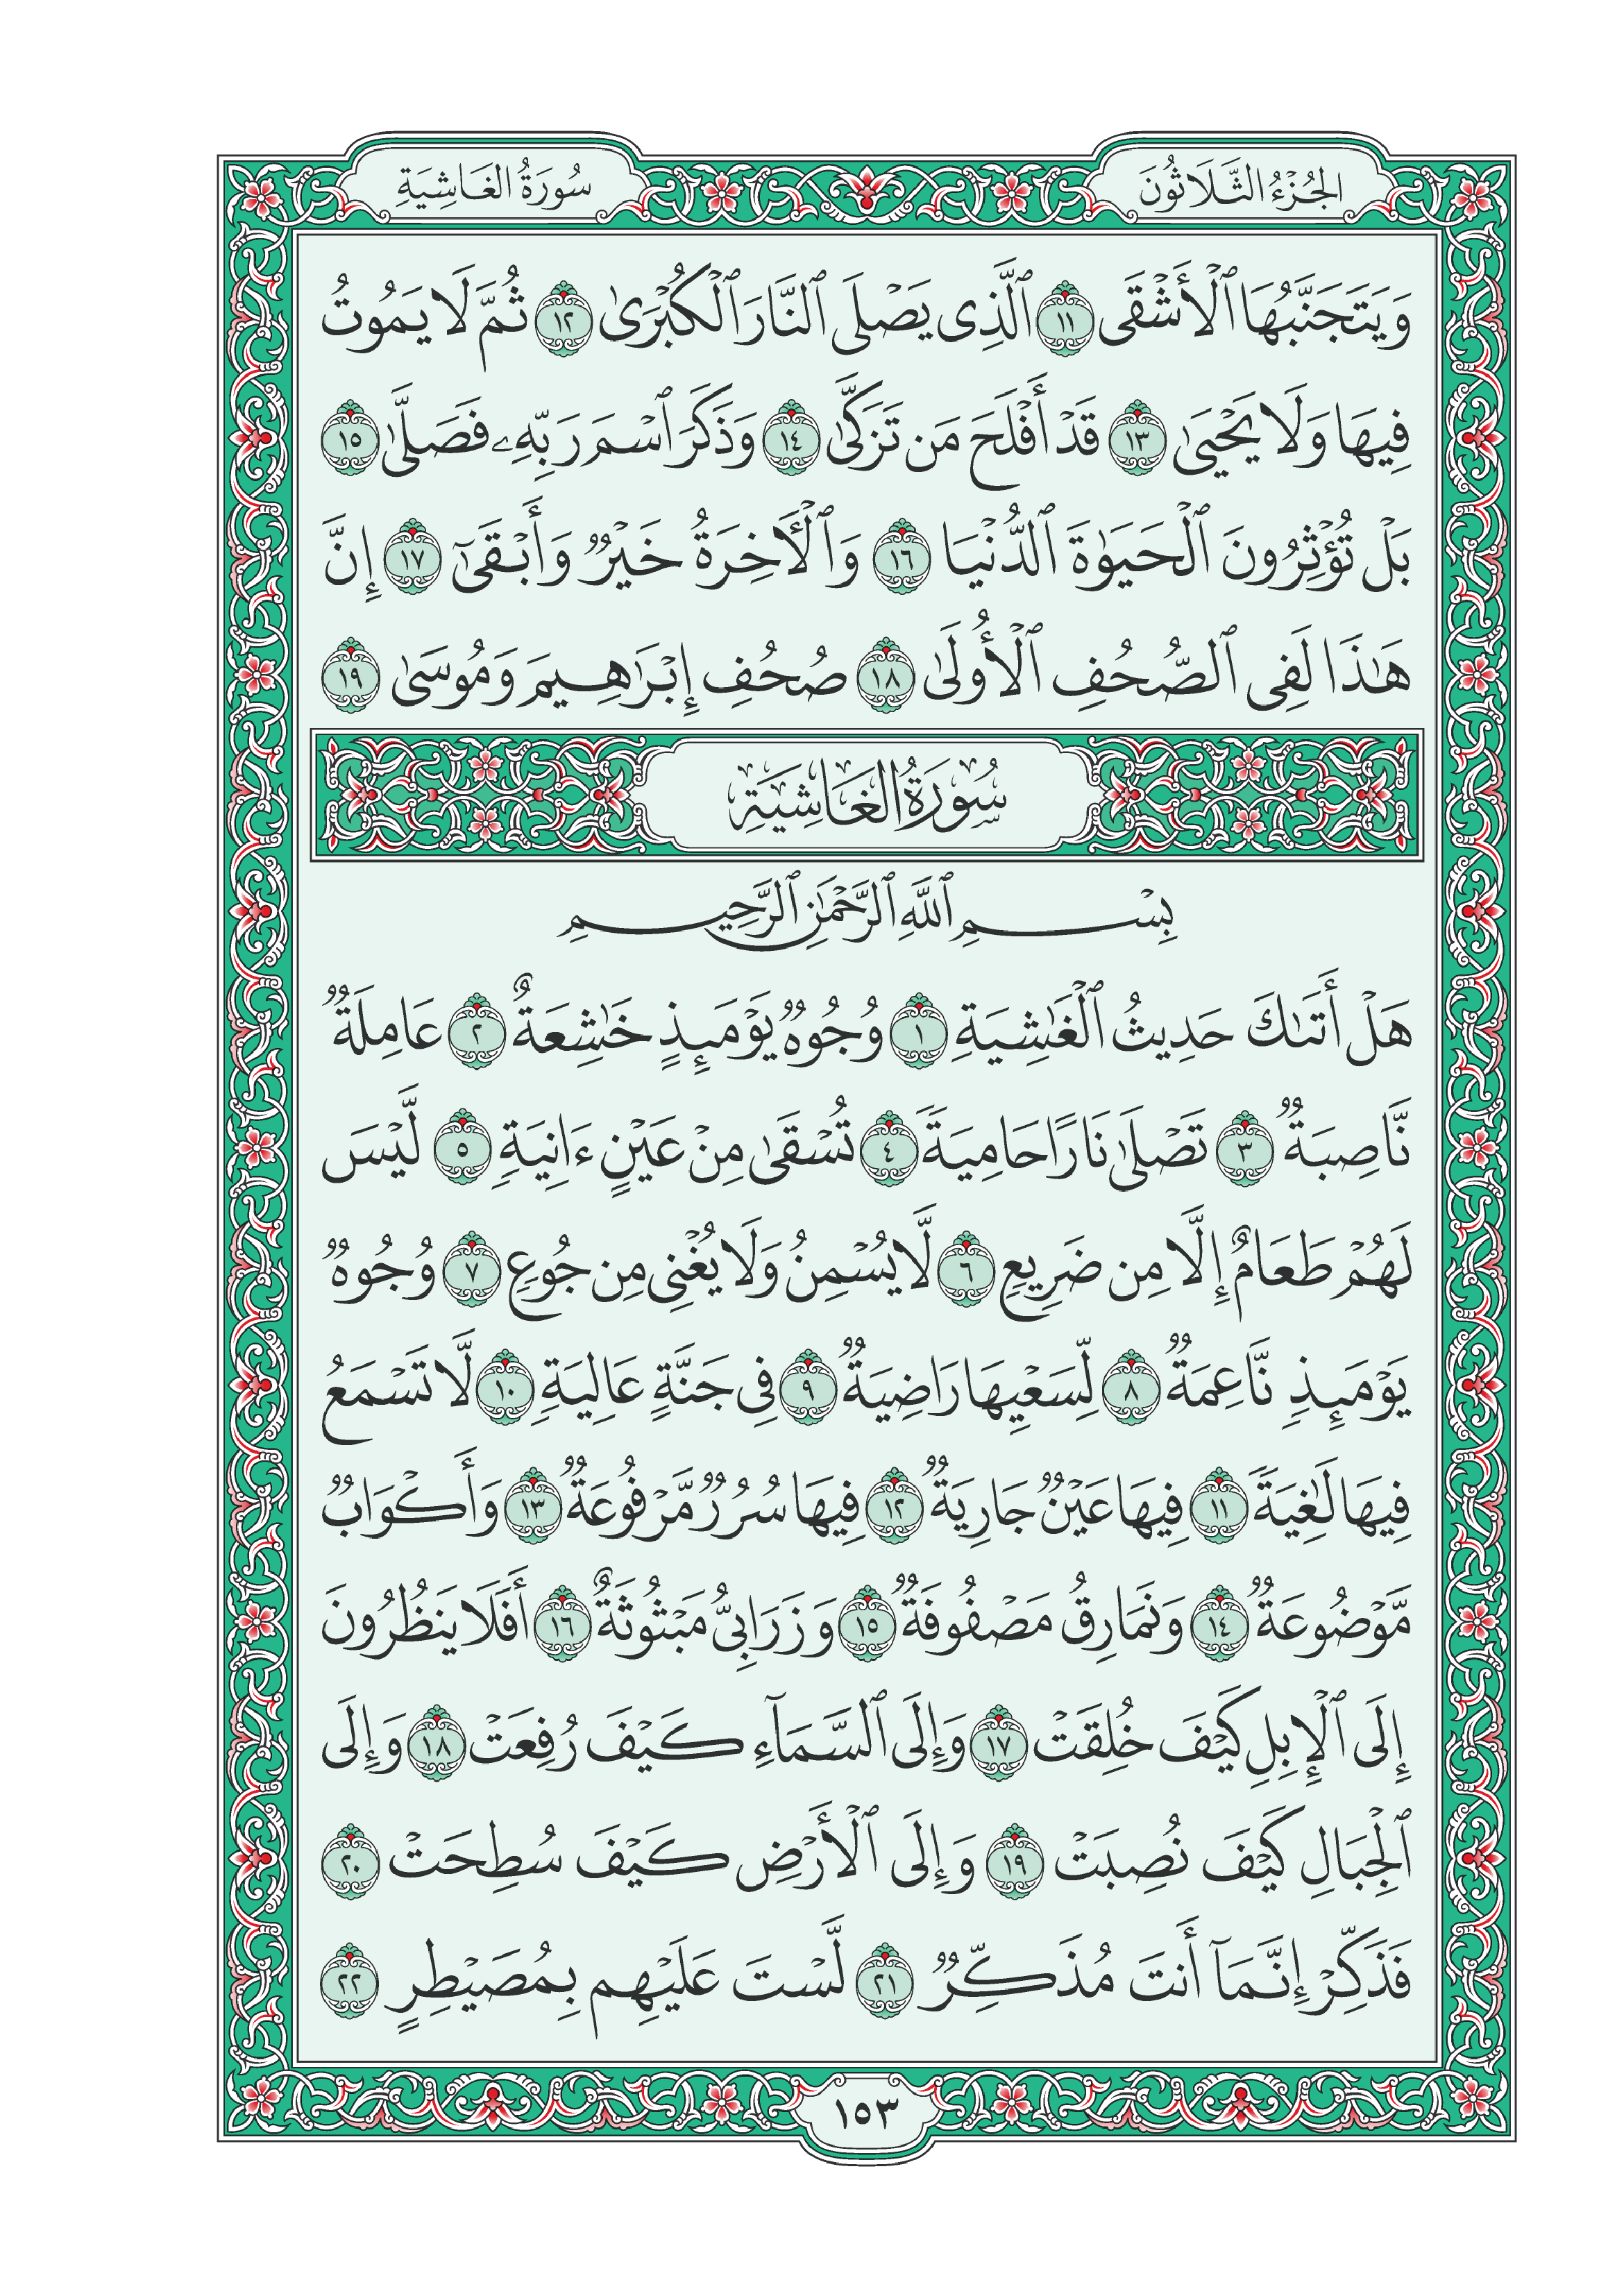 الجُزْءُ الثَّلَاثُونَ
سُورَةُ الغَاشِيَةِ
وَيَتَجَنَّبُهَا ٱلْأَشْقَى ١١ ٱلَّذِى يَصْلَى ٱلنَّارَ ٱلْكُبْرَىٰ ١٢ ثُمَّ لَا يَمُوتُ
فِيهَا وَلَا يَحْيَىٰ ١٣ قَدْ أَفْلَحَ مَن تَزَكَّىٰ ١٤ وَذَكَرَ ٱسْمَ رَبِّهِۦ فَصَلَّىٰ ١٥
بَلْ تُؤْثِرُونَ ٱلْحَيَوٰةَ ٱلدُّنْيَا ١٦ وَٱلْـَٔاخِرَةُ خَيْرٌ وَأَبْقَىٰٓ ١٧ إِنَّ
هَـٰذَا لَفِى ٱلصُّحُفِ ٱلْأُولَىٰ ١٨ صُحُفِ إِبْرَٰهِيمَ وَمُوسَىٰ ١٩
سُورَةُ الغَاشِيَةِ
بِسْمِ ٱللَّهِ ٱلرَّحْمَـٰنِ ٱلرَّحِيمِ
هَلْ أَتَىٰكَ حَدِيثُ ٱلْغَـٰشِيَةِ ١ وُجُوهٌ يَوْمَئِذٍ خَـٰشِعَةٌ ٢ عَامِلَةٌ
نَّاصِبَةٌ ٣ تَصْلَىٰ نَارًا حَامِيَةً ٤ تُسْقَىٰ مِنْ عَيْنٍ ءَانِيَةٍ ٥ لَّيْسَ
لَهُمْ طَعَامٌ إِلَّا مِن ضَرِيعٍ ٦ لَّا يُسْمِنُ وَلَا يُغْنِى مِن جُوعٍ ٧ وُجُوهٌ
يَوْمَئِذٍ نَّاعِمَةٌ ٨ لِّسَعْيِهَا رَاضِيَةٌ ٩ فِى جَنَّةٍ عَالِيَةٍ ١٠ لَّا تَسْمَعُ
فِيهَا لَـٰغِيَةً ١١ فِيهَا عَيْنٌ جَارِيَةٌ ١٢ فِيهَا سُرُرٌ مَّرْفُوعَةٌ ١٣ وَأَكْوَابٌ
مَّوْضُوعَةٌ ١٤ وَنَمَارِقُ مَصْفُوفَةٌ ١٥ وَزَرَابِىُّ مَبْثُوثَةٌ ١٦ أَفَلَا يَنظُرُونَ
إِلَى ٱلْإِبِلِ كَيْفَ خُلِقَتْ ١٧ وَإِلَى ٱلسَّمَآءِ كَيْفَ رُفِعَتْ ١٨ وَإِلَى
ٱلْجِبَالِ كَيْفَ نُصِبَتْ ١٩ وَإِلَى ٱلْأَرْضِ كَيْفَ سُطِحَتْ ٢٠
فَذَكِّرْ إِنَّمَآ أَنتَ مُذَكِّرٌ ٢١ لَّسْتَ عَلَيْهِم بِمُصَيْطِرٍ ٢٢
١٥٣